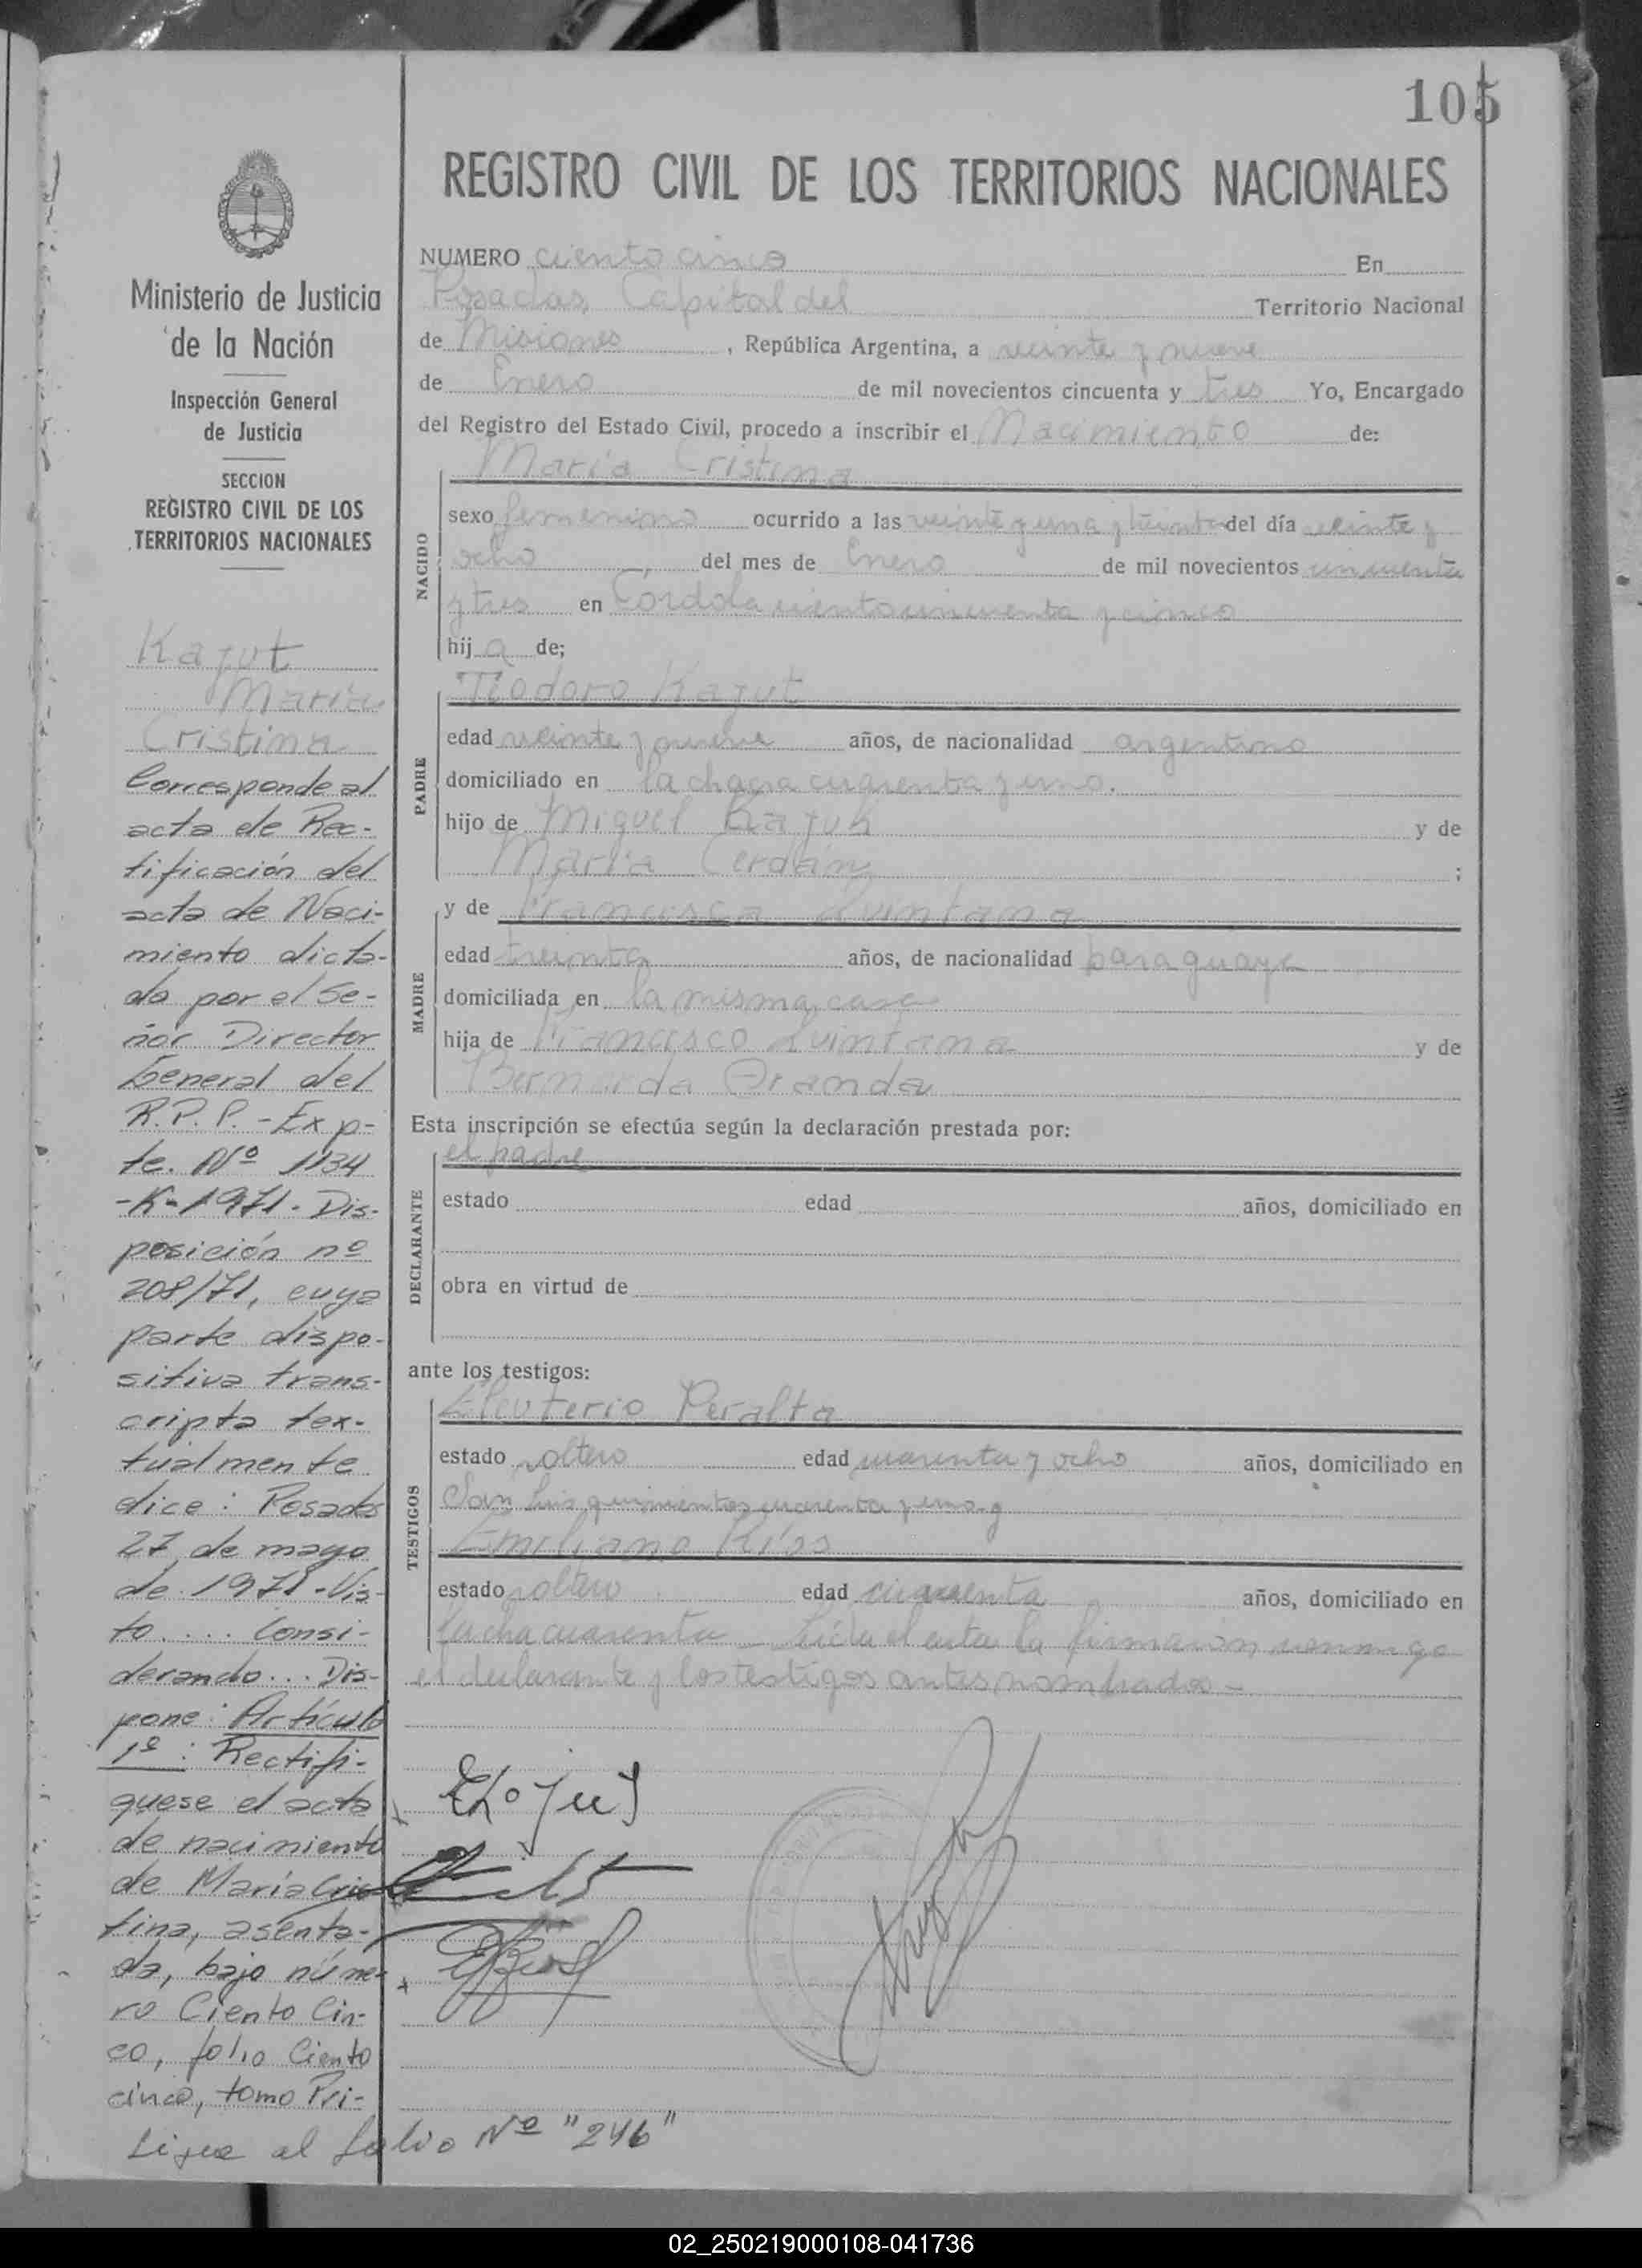 105
REGISTRO CIVIL DE LOS TERRITORIOS NACIONALES
Ministerio de Justicia
de la Nación
Inspección General
de Justicia
SECCION
REGISTRO CIVIL DE LOS
TERRITORIOS NACIONALES
Kazut
Maria
Cristina
Corresponde al
acta de Rec-
tificación del
acta de Naci-
miento dicta-
da por el Se-
ñor Director
General del
R.P.P. - Exp-
te. Nº 1134
-K-1971. Dis-
posición nº
208/71, cuya
parte dispo-
sitiva trans-
cripta tex-
tualmente
dice: Posadas
27 de mayo
de 1971 - Vis-
to.... Consi-
derando... Dis-
pone: Artículo
1º: Rectifi-
quese el acta
de nacimiento
de María Cris-
tina, asenta-
da, bajo núme-
ro Ciento Cin-
co, folio Ciento
cinco, tomo Pri-
Sigue al folio Nº "246"
NUMERO ciento cinco En
Posadas, Capital del Territorio Nacional
de Misiones, República Argentina, a veinte y nueve
de Enero de mil novecientos cincuenta y tres Yo, Encargado
del Registro del Estado Civil, procedo a inscribir el Nacimiento de:
NACIDO
María Cristina
sexo femenino ocurrido a las veinte y una y treinta del día veinte y
ocho del mes de Enero de mil novecientos cincuenta
y tres en Córdoba ciento cincuenta y cinco
hija de;
PADRE
Teodoro Kazut
edad veinte y nueve años, de nacionalidad argentino
domiciliado en la chacra cuarenta y uno.
hijo de Miguel Kazuk y de
María Cerdán;
MADRE
y de Francisca Quintana
edad treinta años, de nacionalidad paraguaya
domiciliada en la misma casa
hija de Francisco Quintana y de
Bernarda Aranda
Esta inscripción se efectúa según la declaración prestada por:
DECLARANTE
el padre
estado edad años, domiciliado en
obra en virtud de
ante los testigos:
TESTIGOS
Eleuterio Peralta
estado soltero edad cuarenta y ocho años, domiciliado en
San Luis quinientos cuarenta y uno y
Emiliano Ríos
estado soltero edad cuarenta años, domiciliado en
la cha cuarenta - Leída el acta la firmaron conmigo
el declarante y los testigos antes nombrados -
02_250219000108-041736